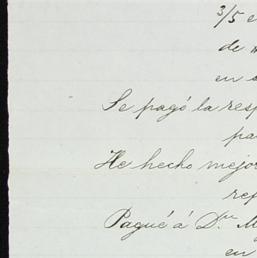 3/5 e
de
en
Se pagó la resp
pa
He hecho mejor
rep
Pagué á D.n M
en